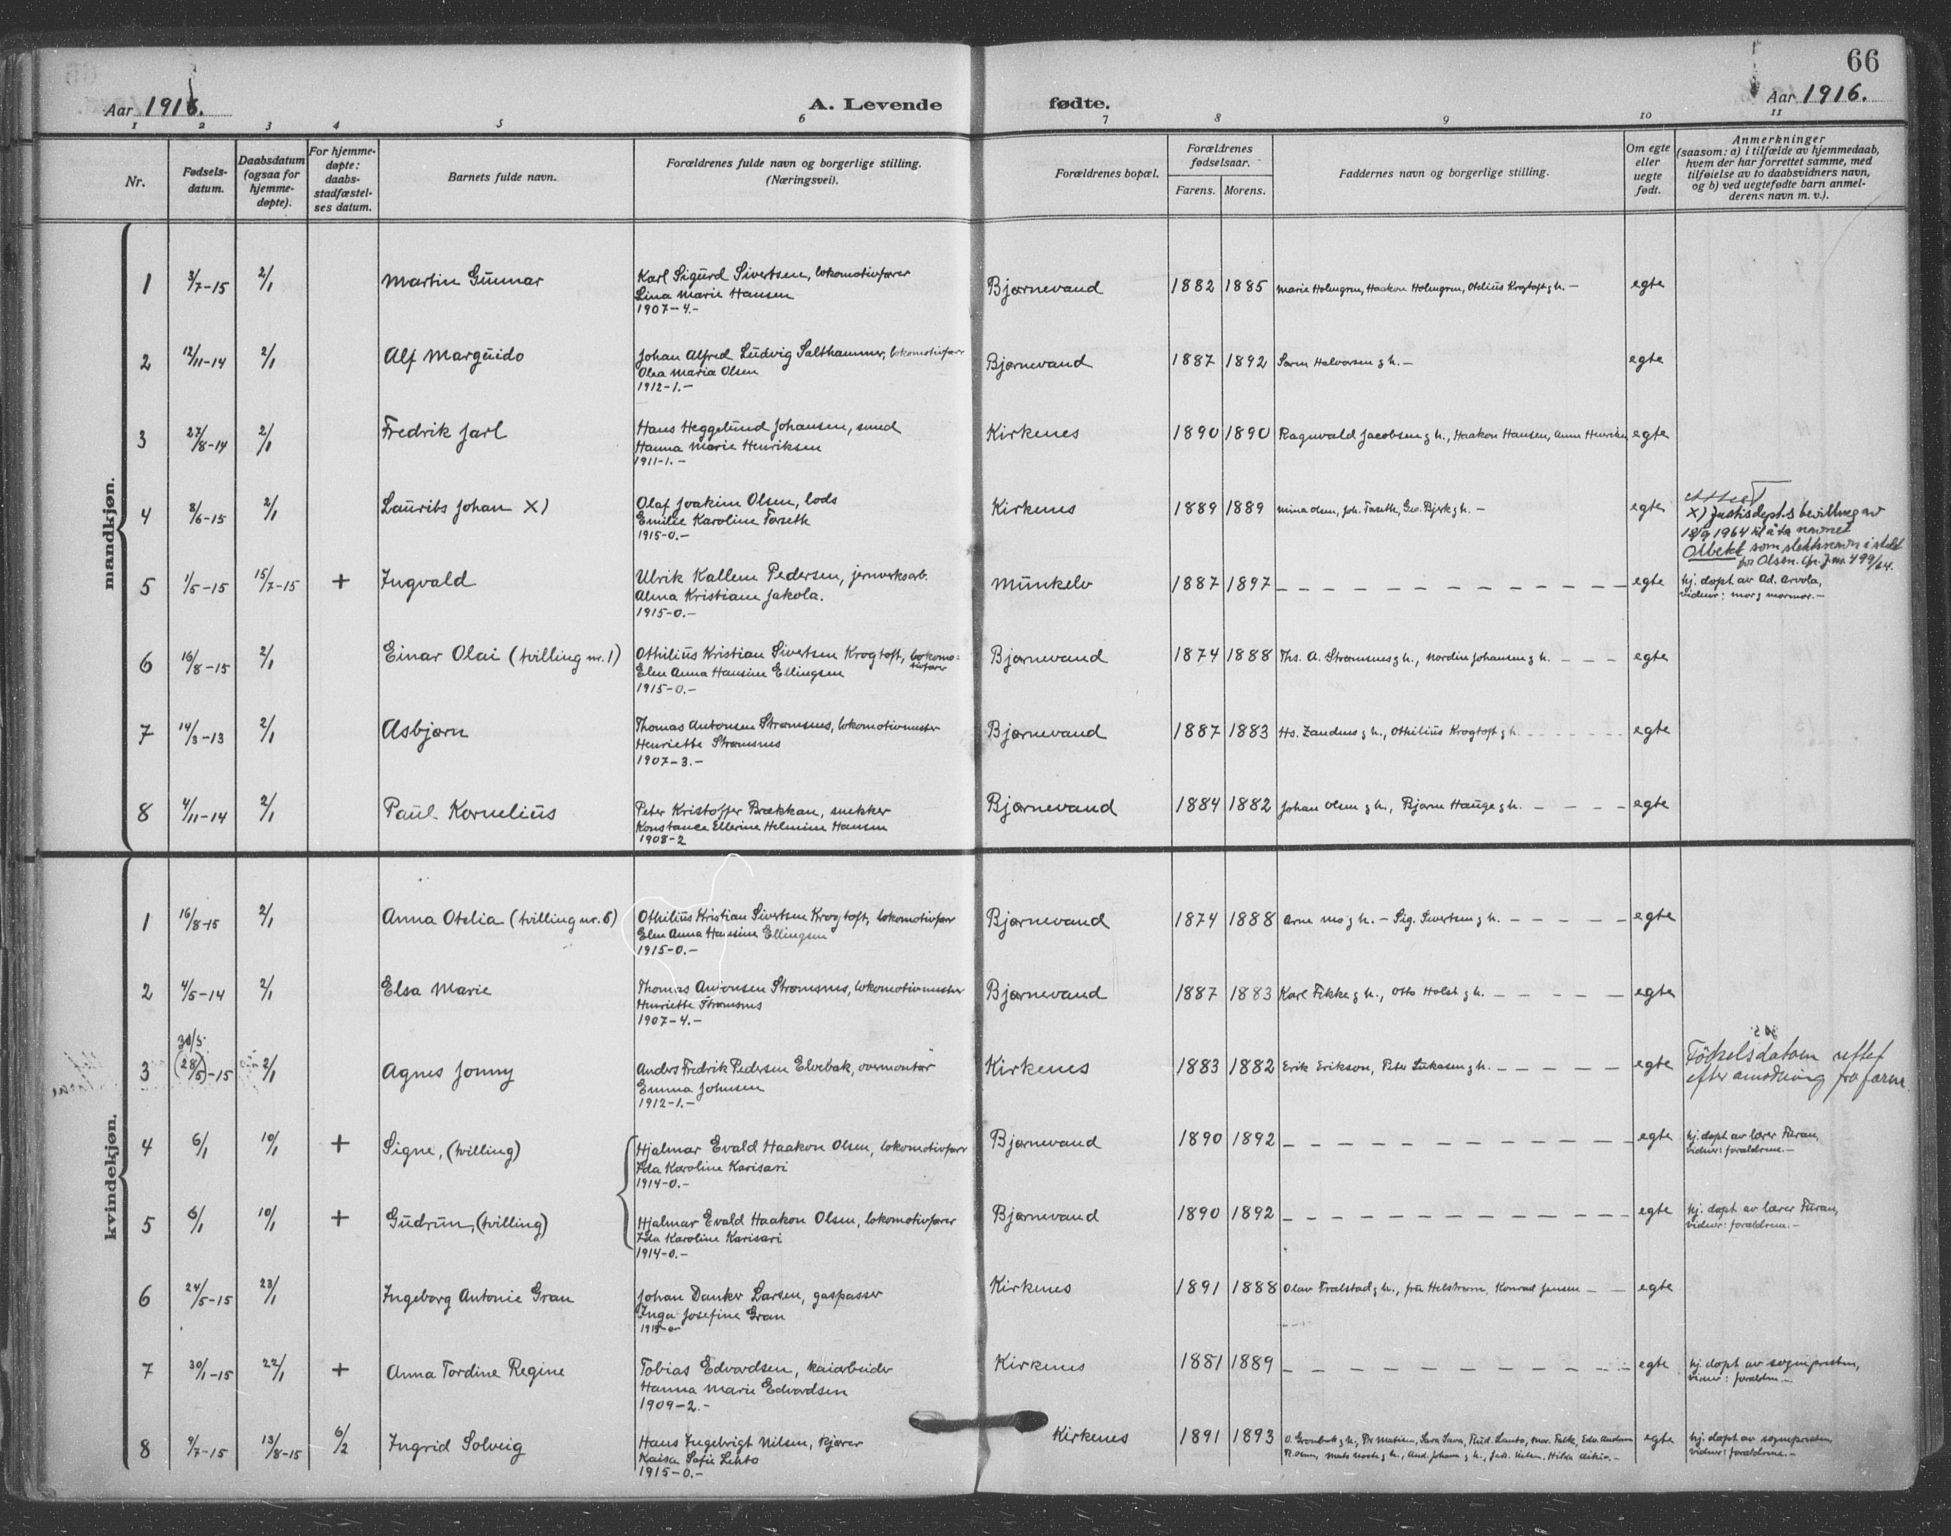 66
Aar 1916.
A. Levende fødte.
Aar 1916.
1 2 3 4 5 6 7 8 9 10 11
Nr.
Fødsels-
datum.
Daabsdatum
(ogsaa for
hjemme-
døpte).
For hjemme-
døpte:
daabs-
stadfæstel-
ses datum.
Barnets fulde navn.
Forældrenes fulde navn og borgerlige stilling.
(Næringsvei).
Forældrenes bopæl.
Forældrenes
fødselsaar.
Farens. Morens.
Faddernes navn og borgerlige stilling.
Om egte
eller
uegte
født.
Anmerkninger
(saasom: a) i tilfælde av hjemmedaab,
hvem der har forrettet samme, med
tilføielse av to daabsvidners navn,
og b) ved uegtefødte barn anmel-
derens navn m. v.).
mandkjøn.
1 3/7-15 2/1 Martin Gunnar
Karl Sigurd Sivertsen, lokomotivfører
Lina Marie Hansen
1907-4.-
Bjørnevand 1882 1885 Marie Holmgren, Haakon Holmgren, Otelius Krogtoft & h. - egte
2 12/11-14 2/1 Alf Marguido
Johan Alfred Ludvig Salthammer, lokomotivfører
Olea Maria Olsen
1912-1.-
Bjørnevand 1887 1892 Søren Halvorsen & h. - egte
3 27/8-14 2/1 Fredrik Jarl
Hans Heggelund Johansen, smed
Hanna Marie Henriksen
1911-1.-
Kirkenes 1890 1890 Ragnvald Jacobsen & h., Haakon Hansen, Anna Henriksen egte
4 8/6-15 2/1 Laurits Johan X)
Olaf Joakim Olsen, lods
Emilie Karoline Forseth
1915-0.-
Kirkenes 1889 1889 Mina Olsen, Joh. Forseth, Geo. Bjerk & h. - egte
X) Justisdept.s bevilling av
18/9 1964 til å ta navnet
Olbekk som slektsnavn i stedet
for Olsen. cfr. J.nr. 499/64.
5 1/5-15 15/7-15 + Ingvald
Ulrik Kallem Pedersen, jernverksarb.
Alma Kristiane Jakola.
1915-0.-
Munkelv 1887 1897 egte
hj. døpt av Ad. Arvola,
vidner: mor & mormor.-
6 16/8-15 2/1 Einar Olai (tvilling nr. 1)
Othilius Kristian Sivertsen Krogtoft, lokomo-
tivfører
Elen Anna Hansine Ellingsen
1915-0.-
Bjørnevand 1874 1888 Ths. A. Strømsnes & h., Nordin Johansen & h. egte
7 14/3-13 2/1 Asbjørn
Thomas Antonsen Strømsnes, lokomotivmester
Henriette Strømsnes
1907-3.-
Bjørnevand 1887 1883 Hs. Zanders & h., Othilius Krogtoft & h. egte
8 4/11-14 2/1 Paul Kornelius
Peter Kristoffer Brækkan, snekker
Konstance Ellerine Helmine Hansen
1908-2
Bjørnevand 1884 1882 Johan Olsen & h., Bjarne Hauge & h. egte
kvindekjøn.
1 16/8-15 2/1 Anna Otelia (tvilling nr. 6)
Othilius Kristian Sivertsen Krogtoft, lokomotivfører
Elen Anna Hansine Ellingsen
1915-0.-
Bjørnevand 1874 1888 Arne Mo & h. - Sig. Sivertsen & h. egte
2 4/5-14 2/1 Elsa Marie
Thomas Antonsen Strømsnes, lokomotivmester
Henriette Strømsnes
1907-4.-
Bjørnevand 1887 1883 Karl Fikke & h., Otto Holst & h. egte
30/5
3 (28/5)-15 2/1 Agnes Jonny
Anders Fredrik Pedersen Elvebak, overmontør
Emma Johnsen
1912-1.-
Kirkenes 1883 1882 Erik Erikson, Peter Lukasen & h. egte
Fødselsdatoen rettet
efter anmodning fra faren.
4 6/1 10/1 + Signe, (tvilling)
Hjalmar Evald Haakon Olsen, lokomotivfører
Ida Karoline Karisari
1914-0.-
Bjørnevand 1890 1892 egte
hj. døpt av lærer Furan,
vidner: forældrene.-
5 6/1 10/1 + Gudrun, (tvilling)
Hjalmar Evald Haakon Olsen, lokomotivfører
Ida Karoline Karisari
1914-0.-
Bjørnevand 1890 1892 egte
hj. døpt av lærer Furan,
vidner: forældrene.-
6 24/5-15 23/1 Ingeborg Antonie Gran
Johan Danker Larsen, gaspasser
Inga Josefine Gran
1915-0-
Kirkenes 1891 1888 Olav Fralstad & h., fru Helstrøm, Konrad Jensen egte
7 30/1-15 22/1 + Anna Tordine Regine
Tobias Edvardsen, kaiarbeider
Hanna Marie Edvardsen
1909-2.-
Kirkenes 1881 1889 egte
hj. døpt av sognepresten,
vidner: forældrene.-
8 9/7-15 13/8-15 6/2 Ingrid Solveig
Hans Ingebrigt Nilsen, kjører
Kaisa Sofie Lehto
1915-0.-
Kirkenes 1891 1893 egte
hj. døpt av sognepresten
vidner: forældrene.-